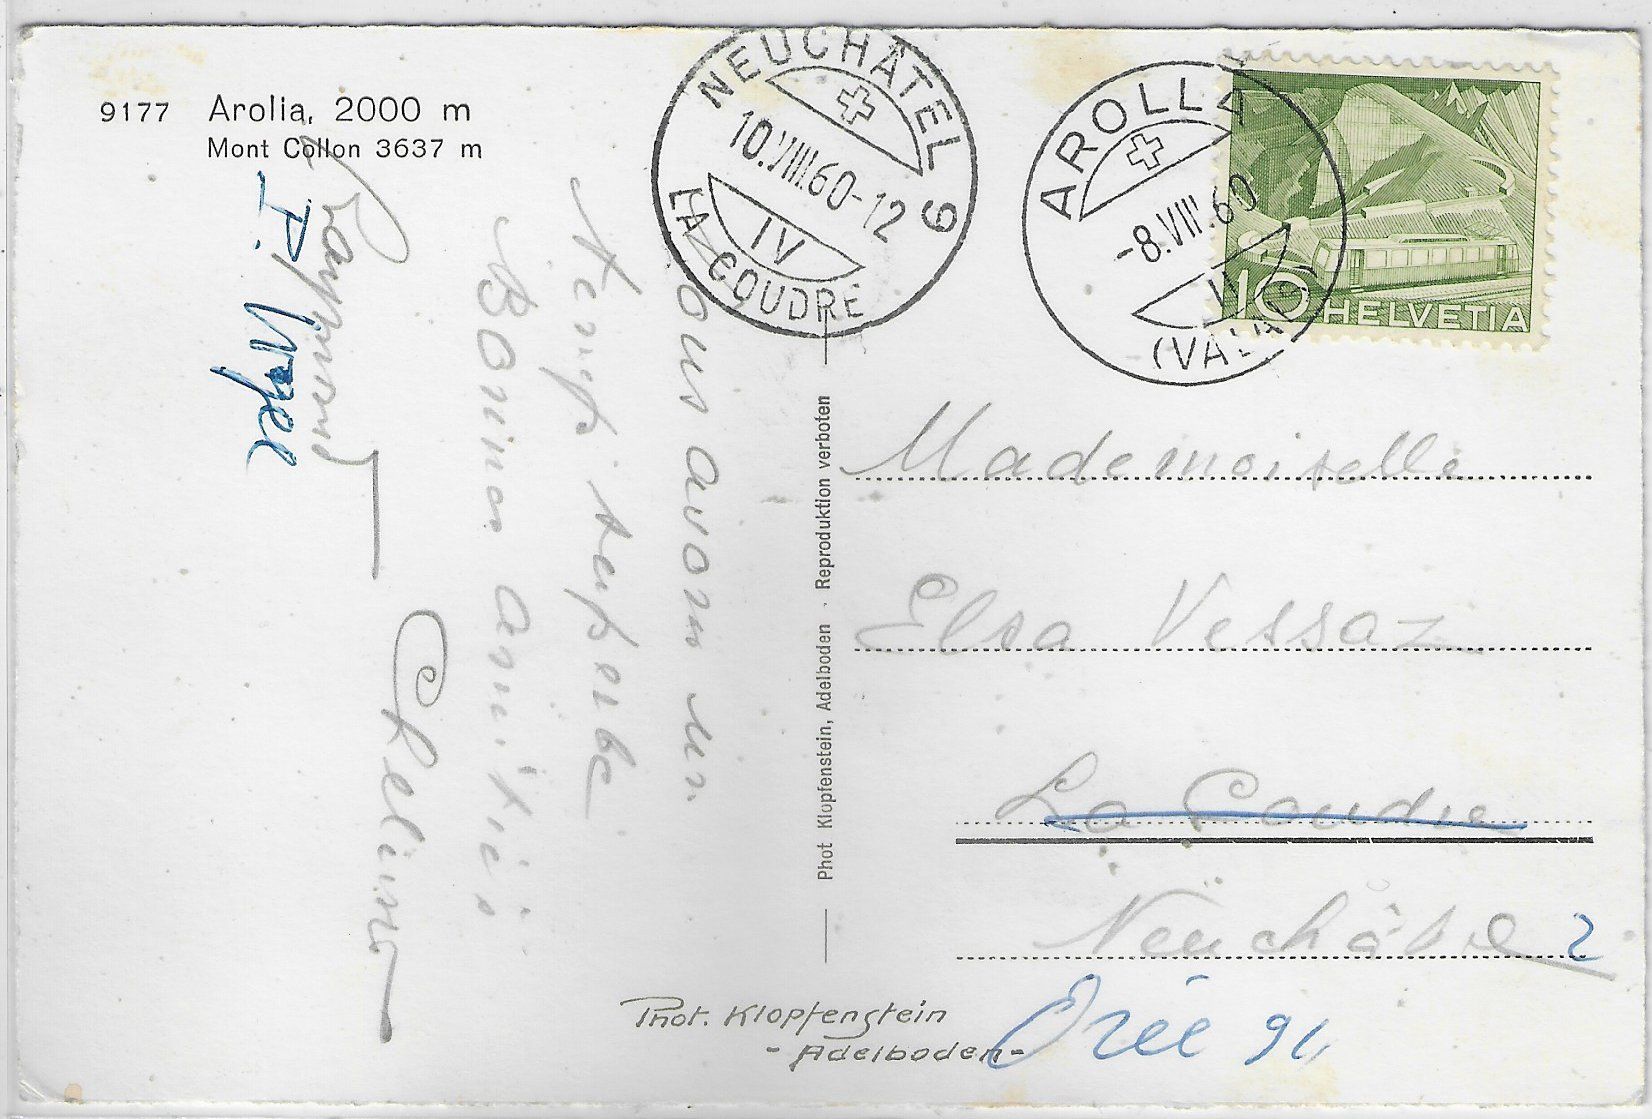 9177 Arolla, 2000 m
Mont Collon 3637 m
NEUCHÂTEL 9
10.VIII.60-12
IV
LA COUDRE
AROLLA
-8.VIII.60
(VALAIS)
10 HELVETIA
ous avons un
temps superbe
Bonnes amitiés
Raymond
P. Vogel
Phot Klopfenstein, Adelboden · Reproduktion verboten
Mademoiselle
Elsa Vessaz
La Coudre
Neuchâtel 2
Orée 91
Phot. Klopfenstein
- Adelboden -